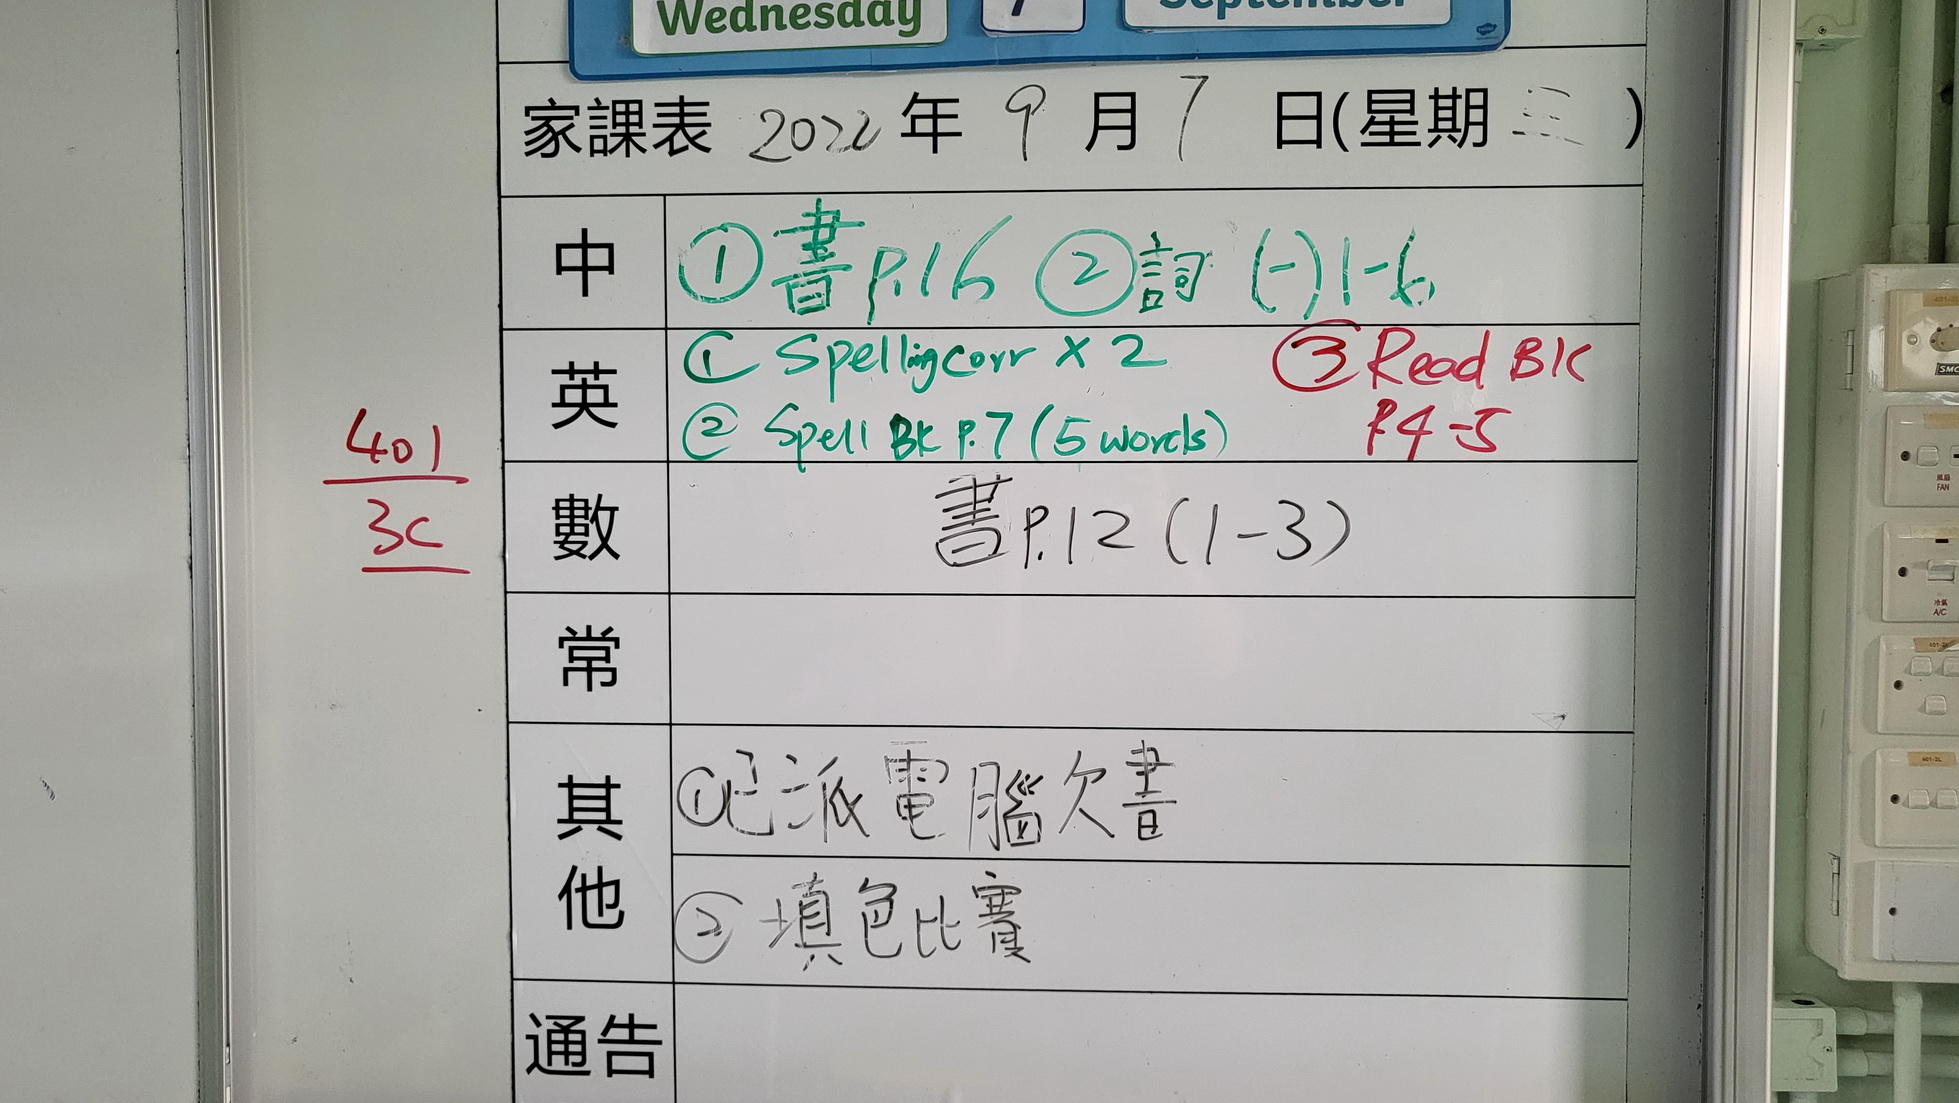 Wednesday 7 September
家課表 2022年9月7日(星期三)
中 ①書P.16 ②詞(一)1-6
英 ① Spelling corr x 2 ③ Read BK
② Spell BK P.7 (5 words) P.4-5
401
3C
數 書P.12 (1-3)
常
其他 ①已派電腦欠書
②填色比賽
通告
風扇
FAN
冷氣
A/C